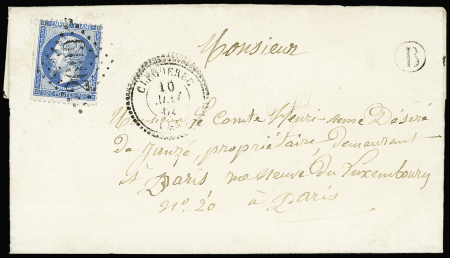 Monsieur
B
10
Monsieur le Comte Henri-anne Désiré
de Janzé, propriétaire, demeurant
à Paris rue neuve du Luxembourg
n.° 20 à Paris